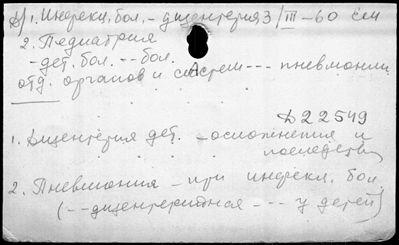 Д/1. Инфекц. бол. - дизентерия 3/III-60 сен
2. Педиатрия
- дет. бол. -- бол.
отд. органов и систем --- пневмонии
Д22549
1. Дизентерия дет. - осложнения и
последствия
2. Пневмония - при инфекц. бол.
(-- дизентерийная --- у детей)